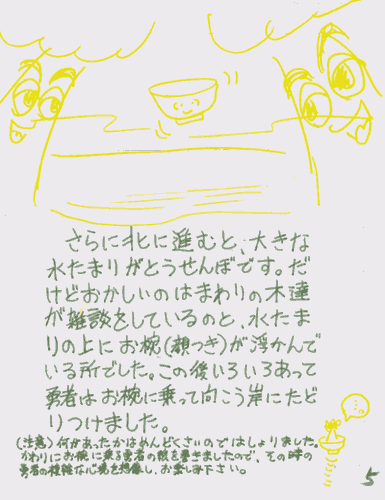 さらに北に進むと、大きな
水たまりがとうせんぼです。だ
けどおかしいのはまわりの木達
が雑談をしているのと、水たま
りの上にお椀(顔つき)が浮かんで
いる所でした。この後いろいろあって
勇者はお椀に乗って向こう岸にたど
りつけました。
(注意)何があったかはめんどくさいのではしょりました。
かわりにお椀に乗る勇者の絵を書きましたので、その時の
勇者の複雑な心境を想像し、お楽しみ下さい。
5